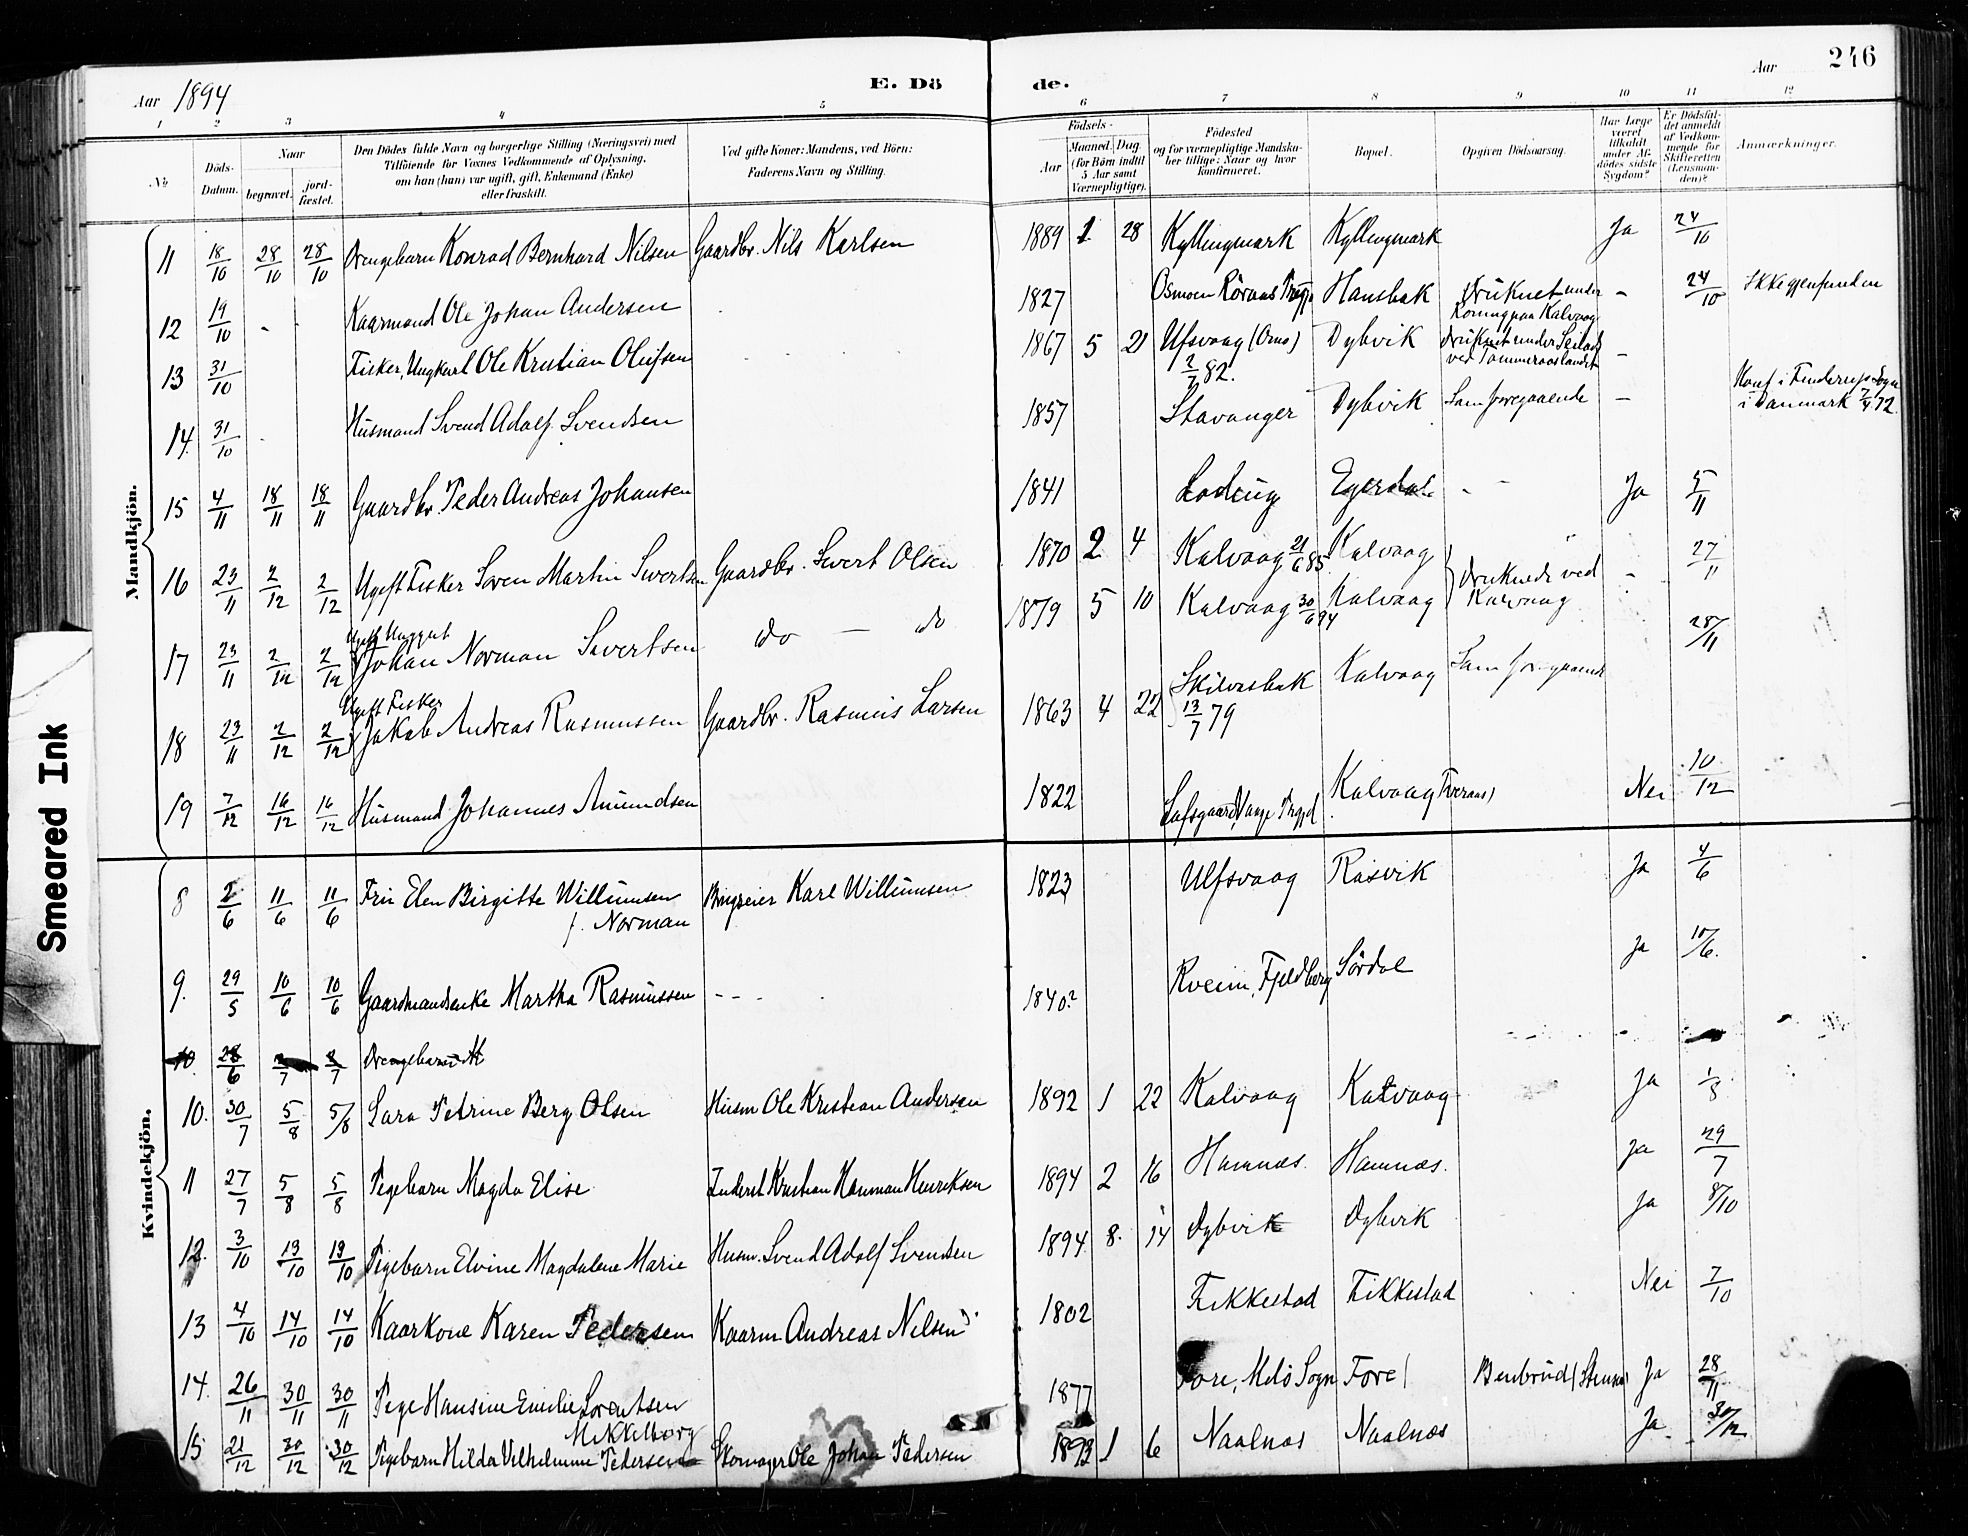 246
Aar 1894
E. Dö de.
Aar
1 2 3 4 5 6 7 8 9 10 11 12
No.
Döds-Datum.
Naar begravet. jord-fæstet.
Den Dödes fulde Navn og borgerlige Stilling (Næringsvei) med Tilföiende for Voxnes Vedkommende af Oplysning, om han (hun) var ugift, gift, Enkemand (Enke) eller fraskilt.
Ved gifte Koner: Mandens, ved Börn: Faderens Navn og Stilling.
Födsels- Aar Maaned. Dag. (for Börn indtil 5 Aar samt Værnepligtige).
Födested og for værnepligtige Mandskaber tillige: Naar og hvor konfirmeret.
Bopæl.
Opgiven Dödsaarsag.
Har Læge været tilkaldt under Afdödes sidste Sygdom?
Er Dödsfaldet anmeldt af Vedkommende for Skifteretten (Lensmanden)?
Anmærkninger.
Mandkjön.
11 18/10 28/10 28/10 Drengebarn Konrad Bernhard Nilsen Gaardbr. Nils Karlsen 1889 1 28 Kyllingmark Kyllingmark Ja 24/10
12 19/10 - - Kaarmand Ole Johan Andersen 1827 Osmoen Röraas Hansbak Druknet under Roning paa Kalvaag - 24/10 Ikke gjenfunden
13 31/10 Fisker, Ungkarl Ole Kristian Olufsen 1867 5 21 Ufsvaag 2/7 82. Dybvik Druknet under Seilads ved -
14. 31/10 Husmand Svend Adolf Svendsen 1857 Stavanger Dybvik Som foregaaende - Konf i Sogn i Danmark 7/4 72
15 4/11 18/11 18/11 Gaardbr. Peder Andreas Johansen 1841 Löding Egerdal - - Ja 5/11
16 23/11 2/12 2/12 Ugift Fisker Soren Martin Sivertsen Gaardbr. Sivert Olsen 1870 2 4 Kalvaag 21/6 85 Kalvaag Druknede ved Kalvaag - 27/11
17 23/11 2/12 2/12 Ugift Johan Norman Sivertsen do - do 1879 5 10 Kalvaag 30/6 94 Kalvaag
18 23/11 2/12 2/12 Ugift Fisker Jakob Andreas Rasmussen Gaardbr. Rasmus Larsen 1863 4 22 Skilvasbak 13/7 79 Kalvaag Som foregaaende 28/11
19 7/12 16/12 16/12 Husmand Johannes Amundsen 1822 Kalvaag Nei 10/12
Kvindekjön.
8 2/6 11/6 11/6 Fru Elen Birgitte Willumsen f. Norman Karl Willumsen 1823 Ulfsvaag Rösvik Ja 4/6
9. 29/5 10/6 10/6 Gaardmandsenke Martha Rasmussen - - - 1840? Kveim, Fjeldberg Sördal Ja 10/6.
10. 28/6 8/7 Drengebarn
10. 30/7 5/8 5/8 Sara Petrine Berg Olsen Husm Ole Kristian Andersen 1892 1 22 Kalvaag Kalvaag Ja 1/8
11 27/7 5/8 5/8 Pigebarn Magda Elise Inderst Kristian Herman Henriksen 1894 2 16 Hamnæs. Hamnæs. Ja 29/7
12. 3/10 13/10 13/10 Pigebarn Elvine Magdalene Marie Husm. Svend Adolf Svendsen 1894 8. 14 Dybvik Dybvik Ja 8/10
13 4/10 14/10 14/10 Kaarkone Karen Pedersen Kaarm Andreas Nilsen 1802 Fikkestad Fikkestad Nei 7/10
14. 26/11 30/11 30/11 Pige Hansine Emilie Lorentsen 1877 Fore, Melö Sogn Fore Benbrud Ja 28/11
15 21/12 30/12 30/12 Pigebarn Hilda Vilhelmine Mikkelborg Pedersen Skomager Ole Johan Pedersen 1893 1 6 Naalnæs Naalnæs Ja. 30/12
Smeared Ink